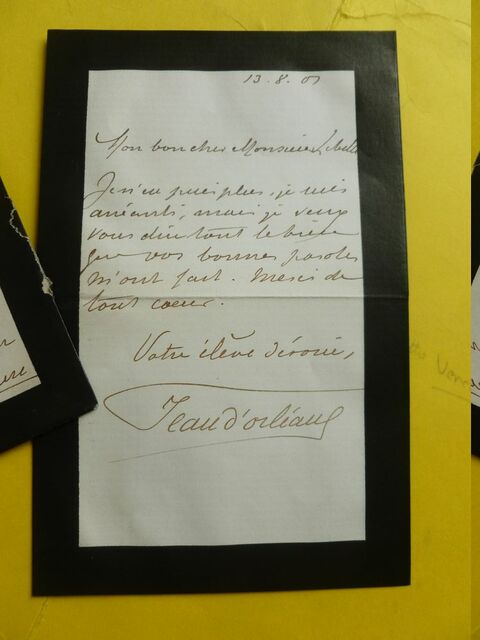 13.8.01
Mon bon cher Monsieur Libelle
Je n'en puis plus, je suis
anéanti, mais je veux
vous dire tout le bien
que vos bonnes paroles
m'ont fait. Merci de
tout coeur.
Votre élève dévoué,
Jean d'orléans